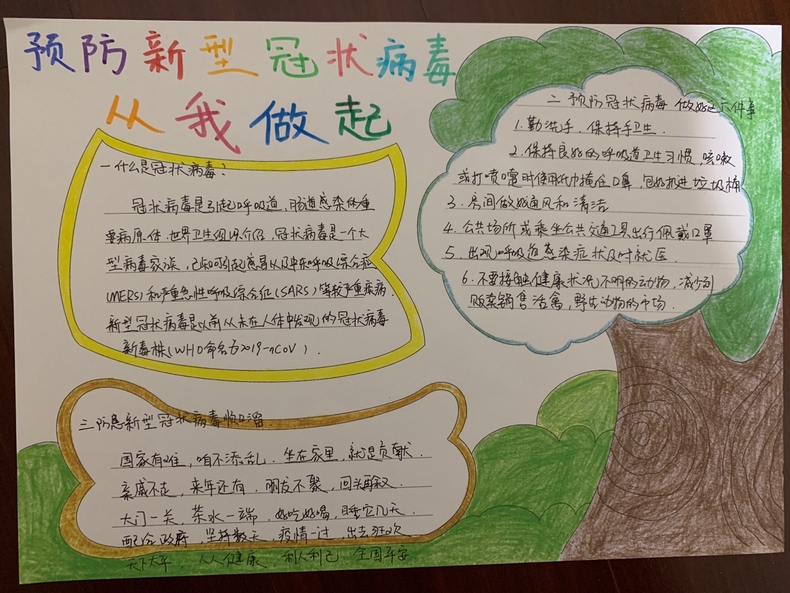 预防新型冠状病毒
从我做起
一什么是冠状病毒?
冠状病毒是引起呼吸道,肠道感染的重
要病原体.世界卫生组织介绍,冠状病毒是一个大
型病毒家族,已知可引起感冒以及中东呼吸综合症
(MERS)和严重急性呼吸综合征(SARS)等较严重疾病.
新型冠状病毒是以前从未在人体中发现的冠状病毒
新毒株(WHO命名为2019-nCoV).
二 预防冠状病毒 做好这六件事
1.勤洗手、保持手卫生.
2.保持良好的呼吸道卫生习惯,咳嗽
或打喷嚏时使用纸巾掩住口鼻,包好扔进垃圾桶
3.房间做好通风和清洁
4.公共场所或乘坐公共交通工具出行佩戴口罩
5.出现呼吸道感染症状及时就医
6.不要接触健康状况不明的动物,减少到
贩卖销售活禽,野生动物的市场.
三防急新型冠状病毒顺口溜.
国家有难,咱不添乱.坐在家里,就是贡献.
亲戚不走,来年还有.朋友不聚,回头再叙
大门一关,茶水一端.好吃好喝,睡它几天
配合政府,坚持数天,疫情一过,出去狂欢
天下太平,人人健康 利人利己 全国平安